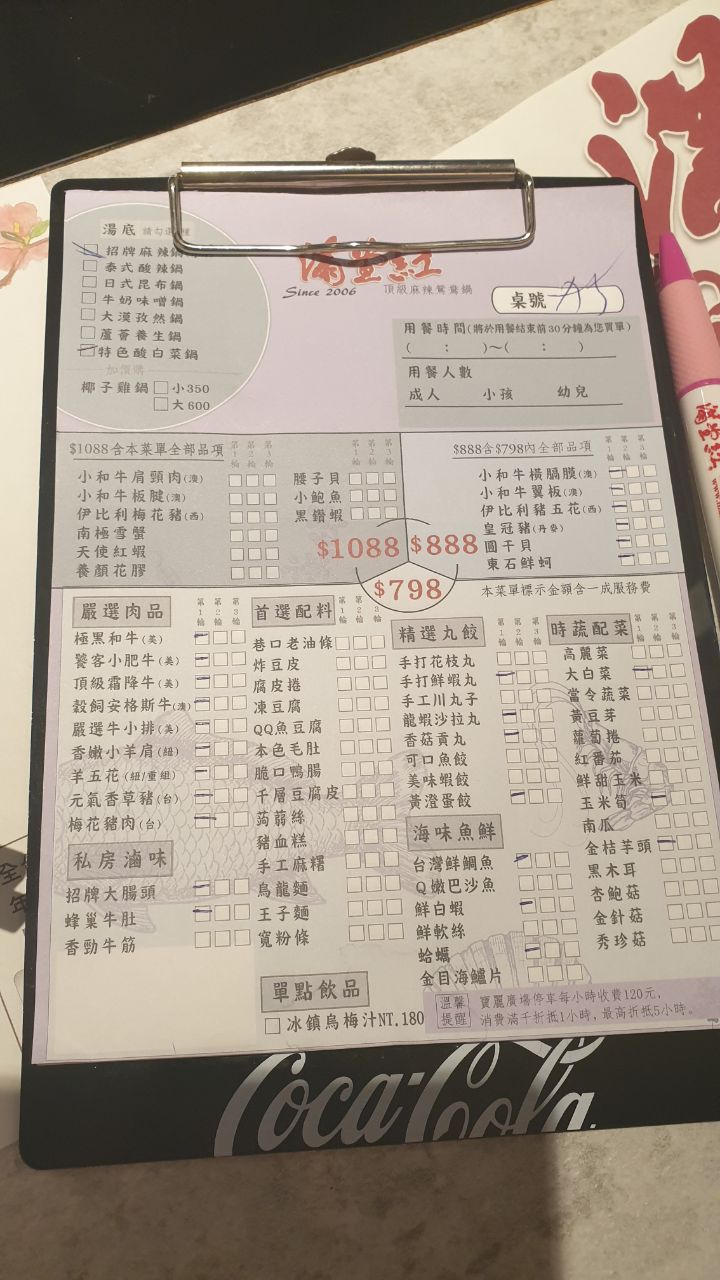 湯底 請勾選
招牌麻辣鍋
泰式酸辣鍋
日式昆布鍋
牛奶味噌鍋
大漠孜然鍋
蘆薈養生鍋
特色酸白菜鍋
加價購
椰子雞鍋 小350
大600
滿堂紅
Since 2006 頂級麻辣鴛鴦鍋
桌號 A5
用餐時間(將於用餐結束前30分鐘為您買單)
( : )~( : )
用餐人數
成人 小孩 幼兒
$1088含本菜單全部品項 第1輪 第2輪 第3輪
小和牛肩頸肉(澳)
小和牛板腱(澳)
伊比利梅花豬(西)
南極雪蟹
天使紅蝦
養顏花膠
第1輪 第2輪 第3輪
腰子貝
小鮑魚
黑鑽蝦
$888含$798內全部品項 第1輪 第2輪 第3輪
小和牛橫膈膜(澳)
小和牛翼板(澳)
伊比利豬五花(西)
皇冠豬(丹麥)
圓干貝
東石鮮蚵
$1088 $888
$798
本菜單標示金額含一成服務費
嚴選肉品 第1輪 第2輪 第3輪
極黑和牛(美)
饕客小肥牛(美)
頂級霜降牛(美)
穀飼安格斯牛(澳)
嚴選牛小排(美)
香嫩小羊肩(紐)
羊五花(紐/重組)
元氣香草豬(台)
梅花豬肉(台)
私房滷味
招牌大腸頭
蜂巢牛肚
香勁牛筋
首選配料 第1輪 第2輪 第3輪
巷口老油條
炸豆皮
腐皮捲
凍豆腐
QQ魚豆腐
本色毛肚
脆口鴨腸
千層豆腐皮
蒟蒻絲
豬血糕
手工麻糬
烏龍麵
王子麵
寬粉條
單點飲品
冰鎮烏梅汁NT.180
精選丸餃 第1輪 第2輪 第3輪
手打花枝丸
手打鮮蝦丸
手工川丸子
龍蝦沙拉丸
香菇貢丸
可口魚餃
美味蝦餃
黃澄蛋餃
海味魚鮮
台灣鮮鯛魚
Q嫩巴沙魚
鮮白蝦
鮮軟絲
蛤蠣
金目海鱸片
時蔬配菜 第1輪 第2輪 第3輪
高麗菜
大白菜
當令蔬菜
黃豆芽
蘿蔔捲
紅番茄
鮮甜玉米
玉米筍
南瓜
金桔芋頭
黑木耳
杏鮑菇
金針菇
秀珍菇
溫馨提醒
寶麗廣場停車每小時收費120元,
消費滿千折抵1小時,最高折抵5小時。
Coca-Cola